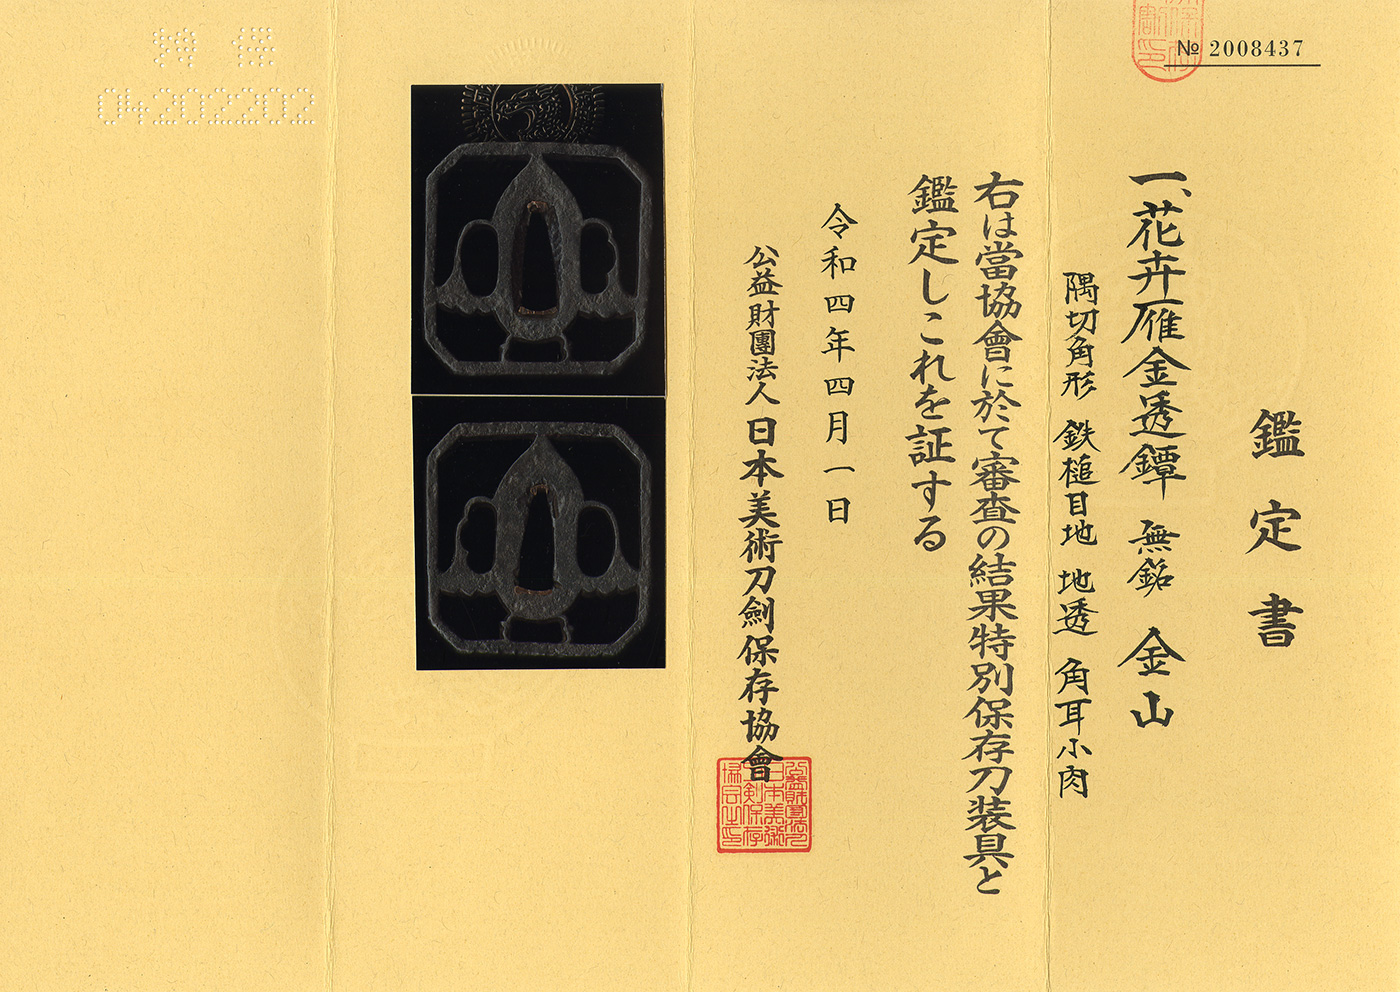 № 2008437
鑑定書
一、花卉雁金透鐔 無銘 金山
隅切角形 鉄槌目地 地透 角耳小肉
右は當協會に於て審査の結果特別保存刀装具と
鑑定しこれを証する
令和四年四月一日
公益財團法人 日本美術刀劍保存協會
04202202